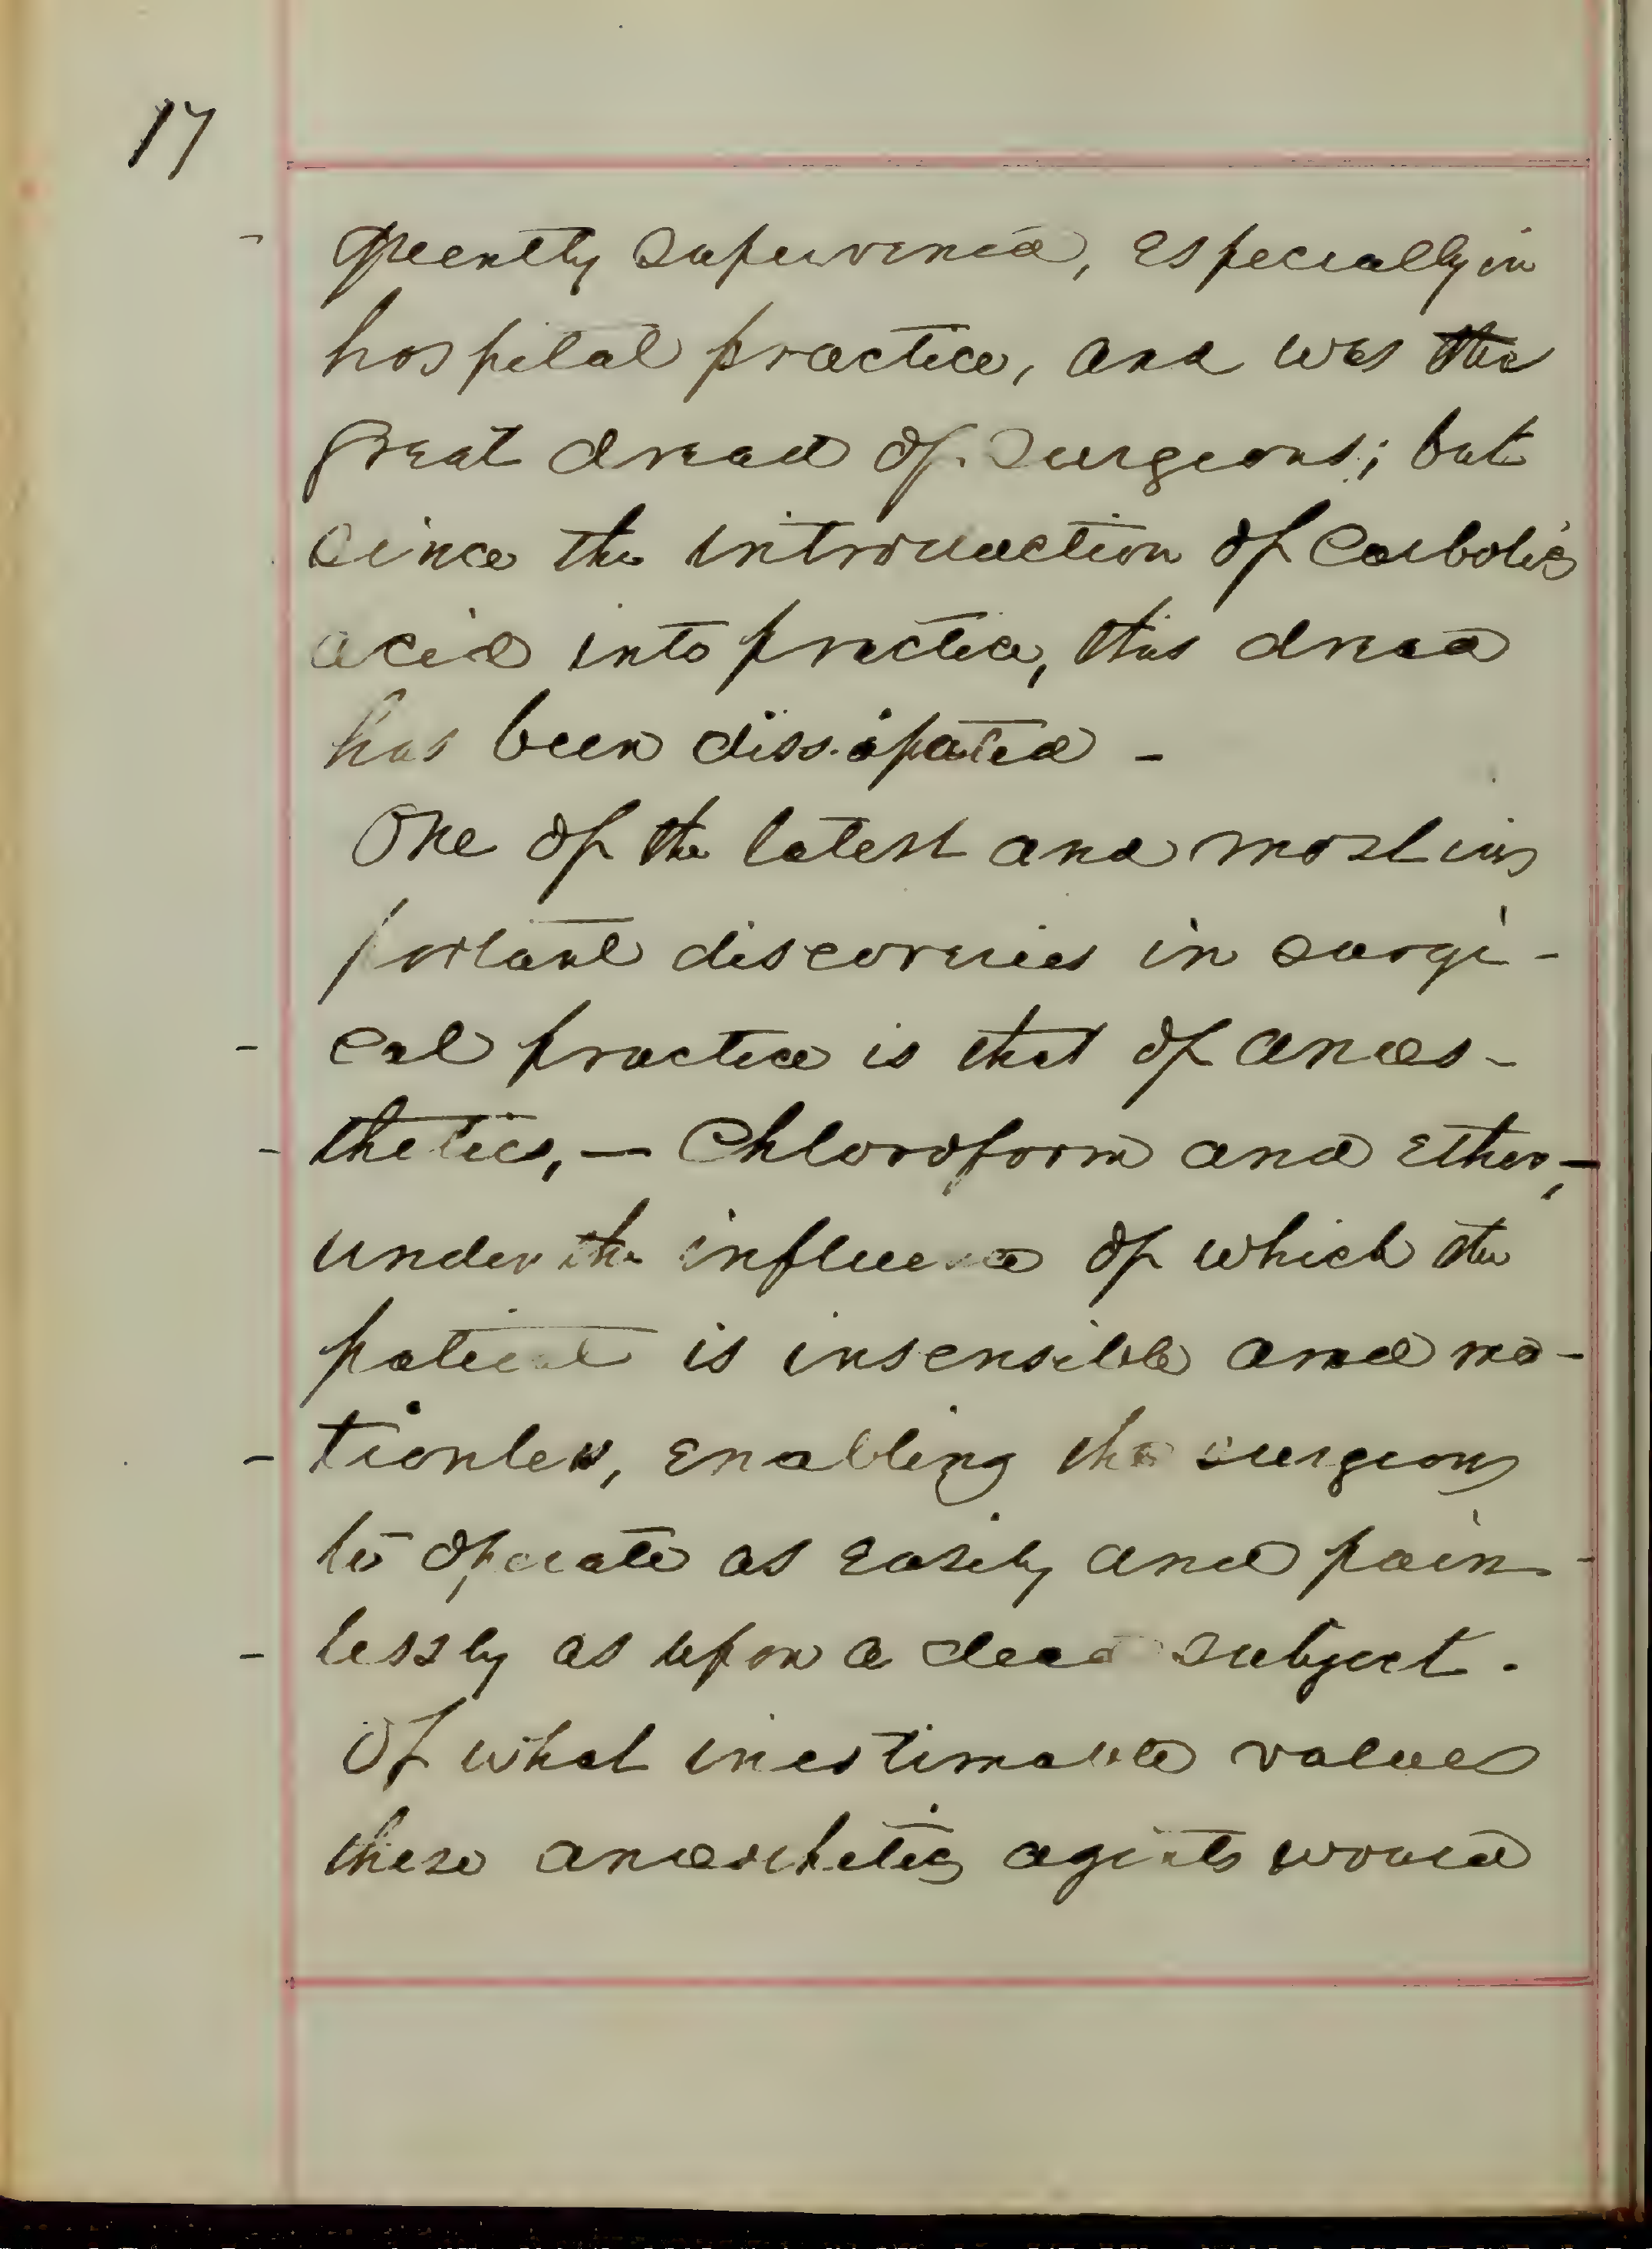 17
- quently supervened, especially in
hospital practice, and was the
great dread of Surgeons; but
since the introduction of Carbolic
acid into practice, this dread
has been dissipated -
One of the latest and most im
portant discoveries in surgi-
- cal practice is that of anaes-
- thetics, — Chloroform and Ether,—
under the influence of which the
patient is insensible and mo-
- tionless, enabling the surgeon
to operate as easily and pain-
- lessly as upon a dead subject.
Of what inestimable value
these anaesthetic agents would